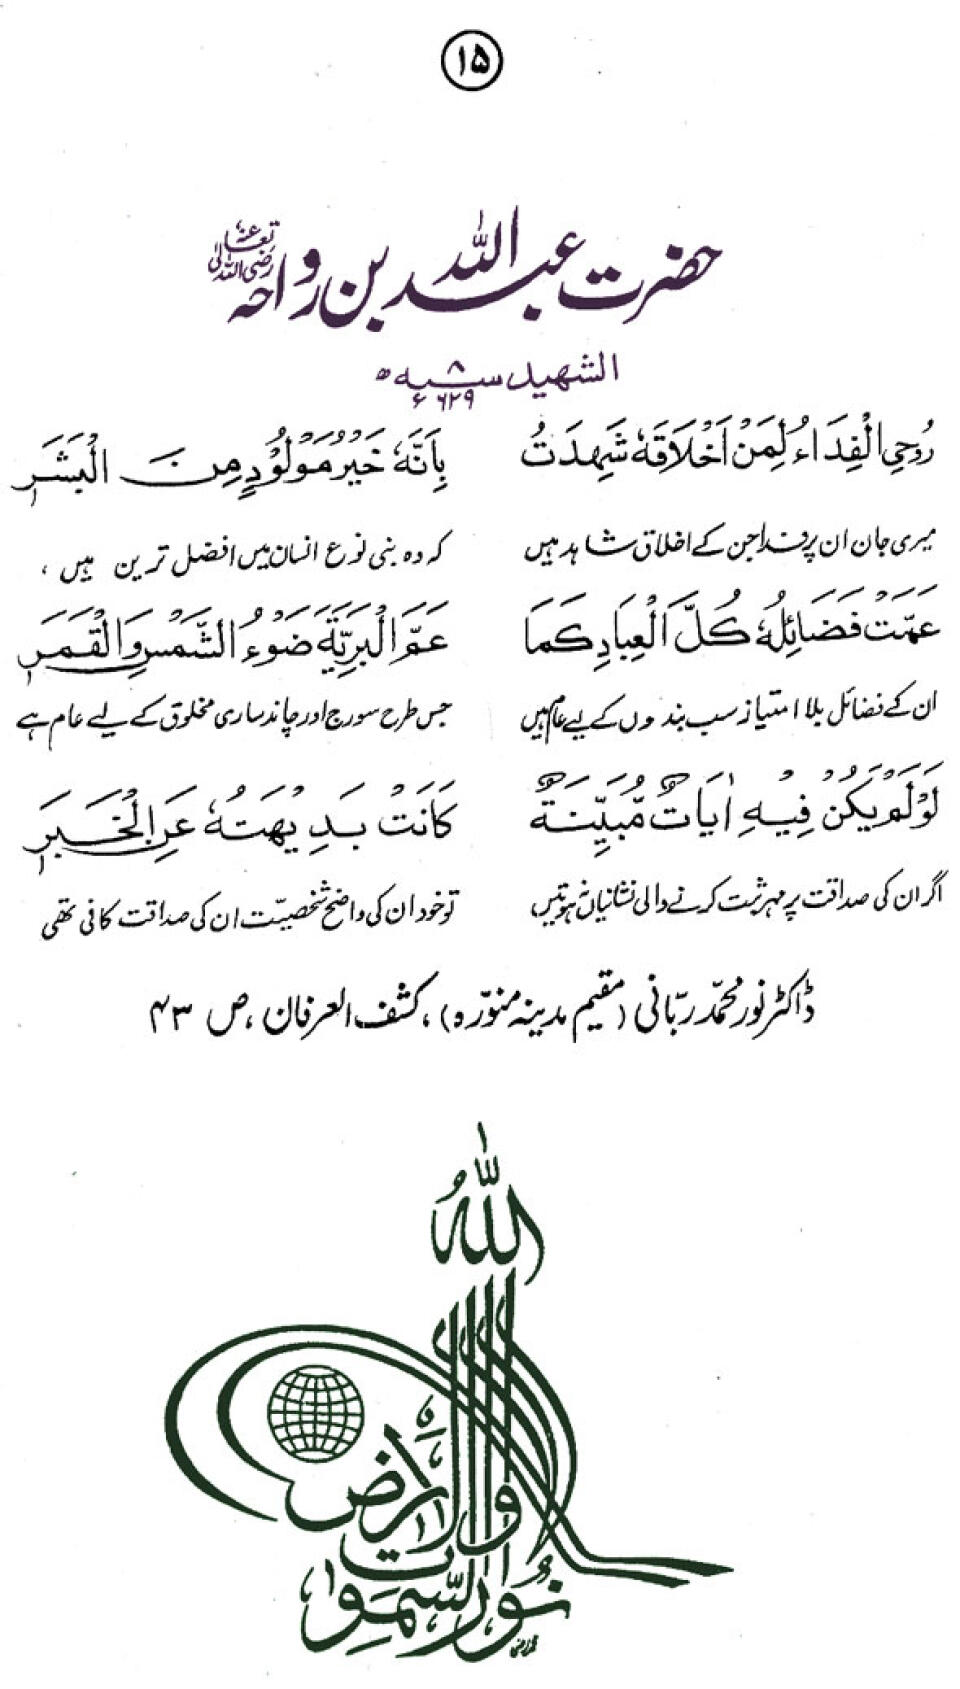 ۱۵
حضرت عبد اللہ بن رواحہ رضی اللہ تعالیٰ عنہ
الشهید سنہ ۸ ھ
۶۲۹ ء
رُوْحِی الْفِدَاءُ لِمَنْ اَخْلَاقَهٗ شَهِدَتْ بِاَنَّهٗ خَیْرُ مَوْلُوْدٍ مِنَ الْبَشَرِ
میری جان ان پر فدا جن کے اخلاق شاہد ہیں کہ وہ بنی نوع انسان میں افضل ترین ہیں ،
عَمَّتْ فَضَائِلُهٗ كُلَّ الْعِبَادِ كَمَا عَمَّ الْبَرِیَّةَ ضَوْءُ الشَّمْسِ وَالْقَمَرِ
ان کے فضائل بلا امتیاز سب بندوں کے لیے عام ہیں جس طرح سورج اور چاند ساری مخلوق کے لیے عام ہے
لَوْ لَمْ یَكُنْ فِیْهِ اٰیَاتٌ مُّبَیِّنَةٌ كَانَتْ بَدِیْهَتُهٗ عَنِ الْخَبَرِ
اگر ان کی صداقت پر مہر ثبت کرنے والی نشانیاں نہ ہوتیں، تو خود ان کی واضح شخصیّت ان کی صداقت کافی تھی
ڈاکٹر نور محمّد ربّانی (مقیم مدینہ منوّرہ) ، کشف العرفان ، ص ۴۳
اللّٰهُ
نُوْرُ السَّمٰوٰتِ
وَالْاَرْضِ